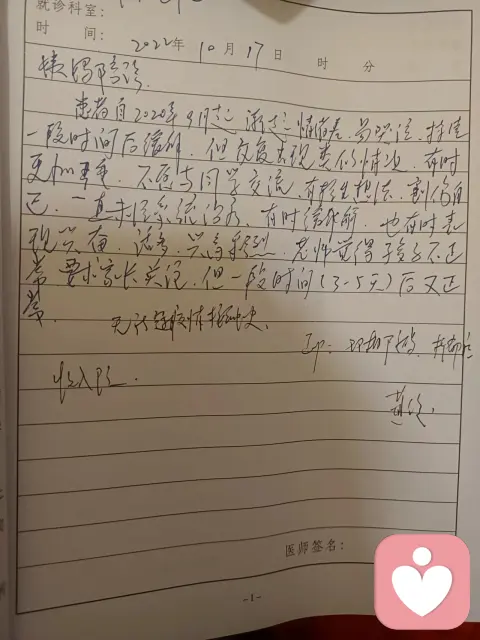 就诊科室:
时 间: 2022年 10 月 17 日 时 分
姨妈陪诊.
患者自2020年9月起 渐起情绪差、易哭泣、持续
一段时间后缓解, 但反复出现类似情况, 有时
更加严重, 不愿与同学交流, 有轻生想法, 割伤自
己, 一直未经系统治疗, 有时缓解, 也有时表
现兴奋、话多、兴高采烈, 老师觉得孩子不正
常 要求家长关注, 但一段时间(3-5天)后又正
常.
收入院.
医师签名:
-1-